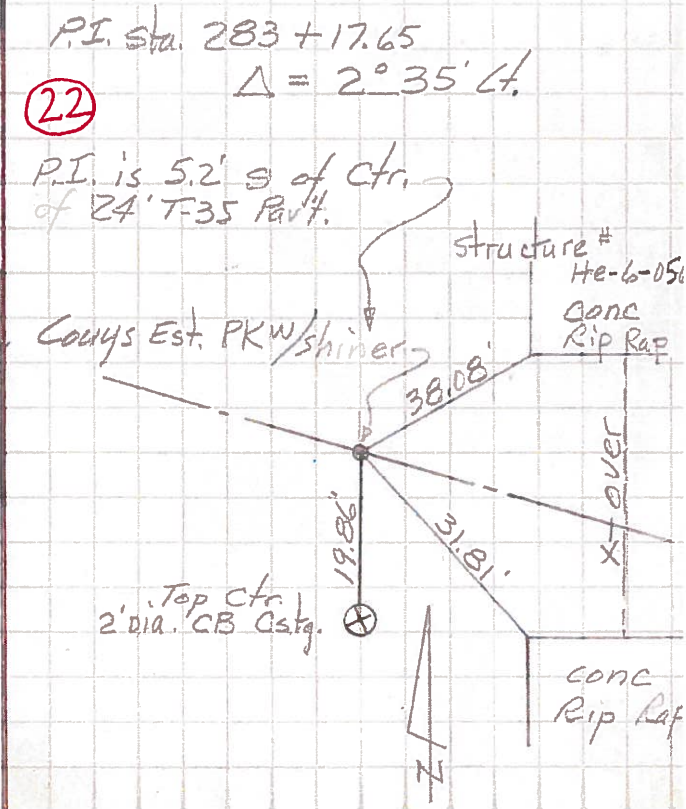 P.I. sta. 283 + 17.65
Δ = 2° 35' Lt.
22
P.I. is 5.2' S of Ctr.
of 24' T-35 Pav't.
structure #
He-6-056
conc
Rip Rap
Est. PKW/shiner
38.08'
19.86'
31.81'
X-over
Top Ctr.
2' Dia. CB Cstg.
conc
Rip Rap
N